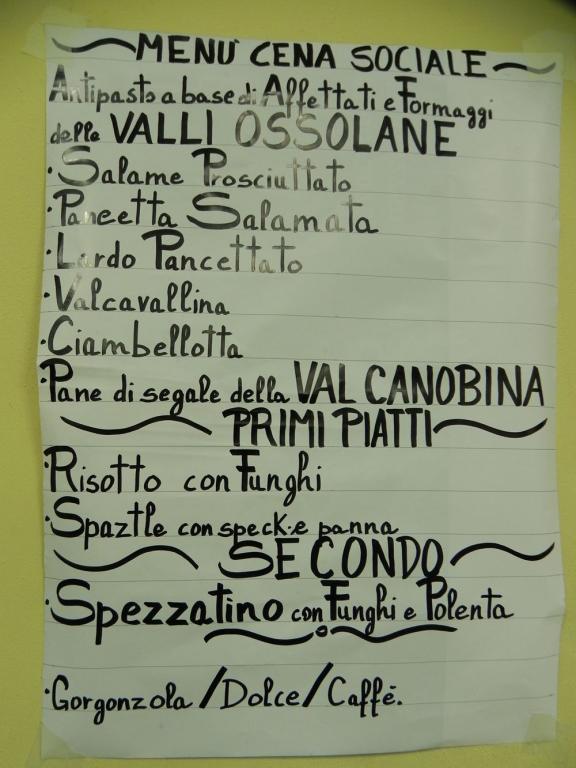 MENU' CENA SOCIALE
Antipasto a base di Affettati e Formaggi
delle VALLI OSSOLANE
·Salame Prosciuttato
·Pancetta Salamata
·Lardo Pancettato
·Valcavallina
·Ciambellotta
·Pane di segale della VAL CANOBINA
PRIMI PIATTI
·Risotto con Funghi
·Spaztle con speck e panna
SECONDO
·Spezzatino con Funghi e Polenta
·Gorgonzola / Dolce / Caffè.